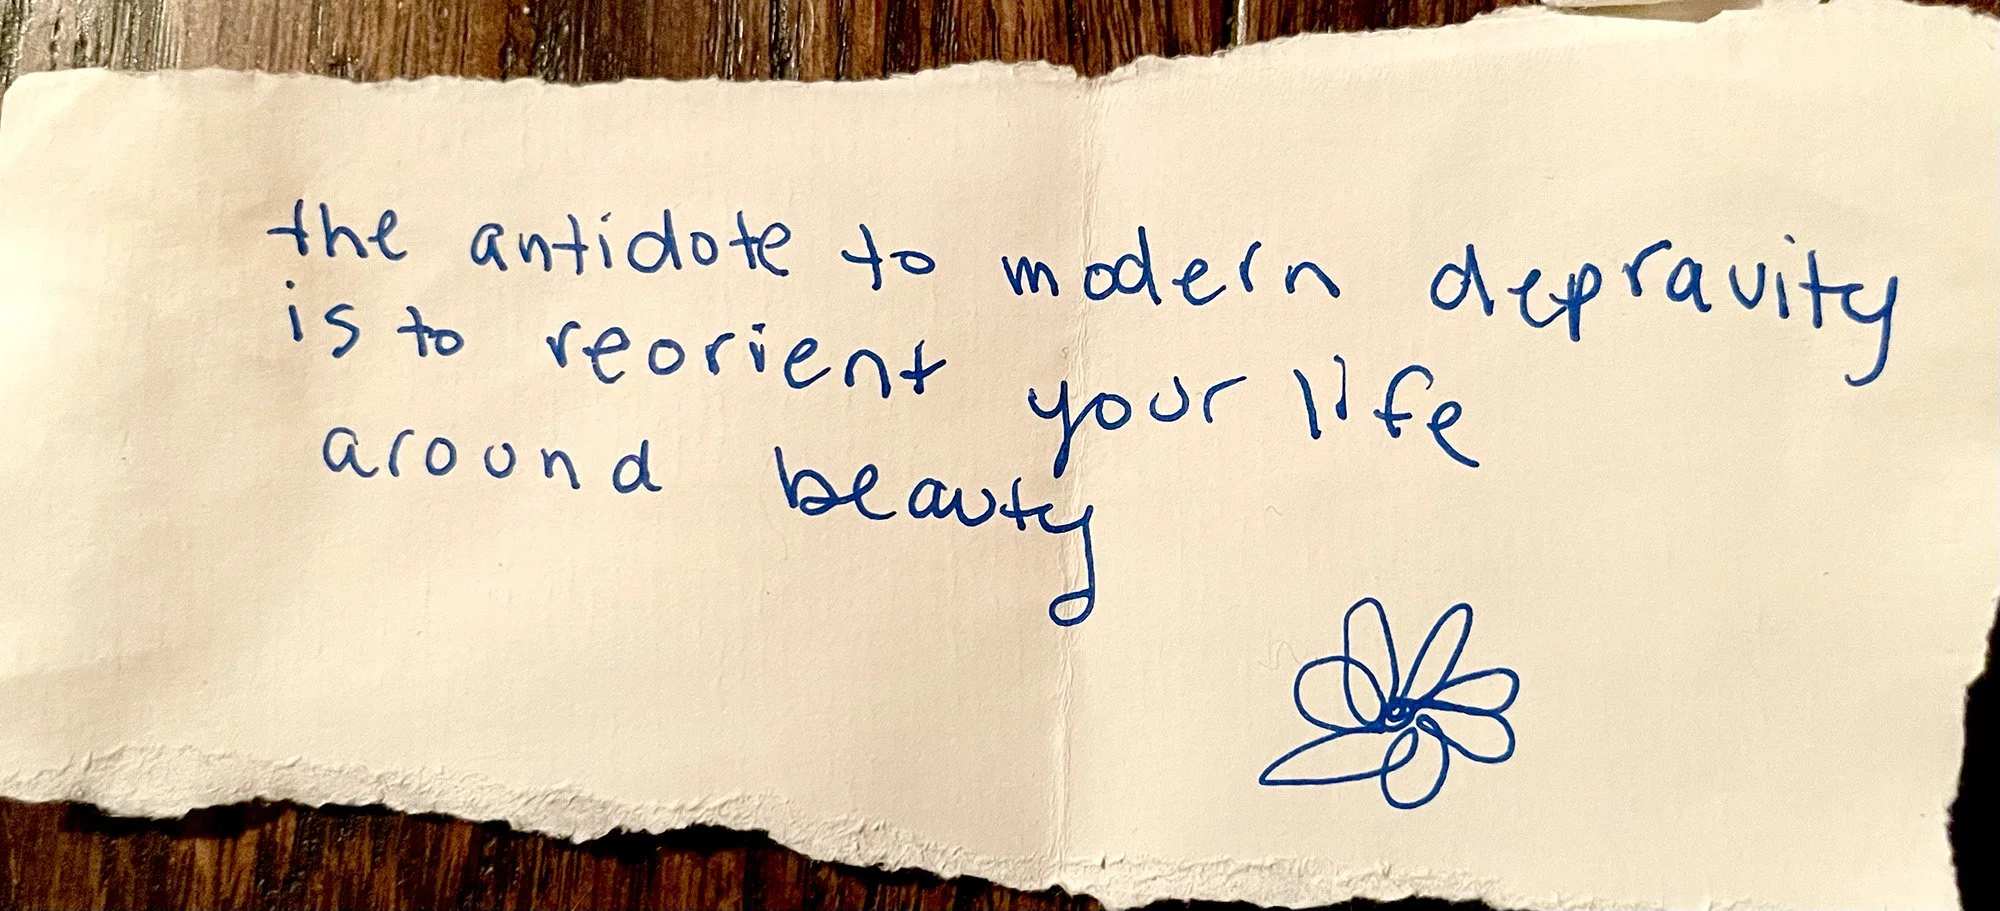 the antidote to modern depravity
is to reorient your life
around beauty